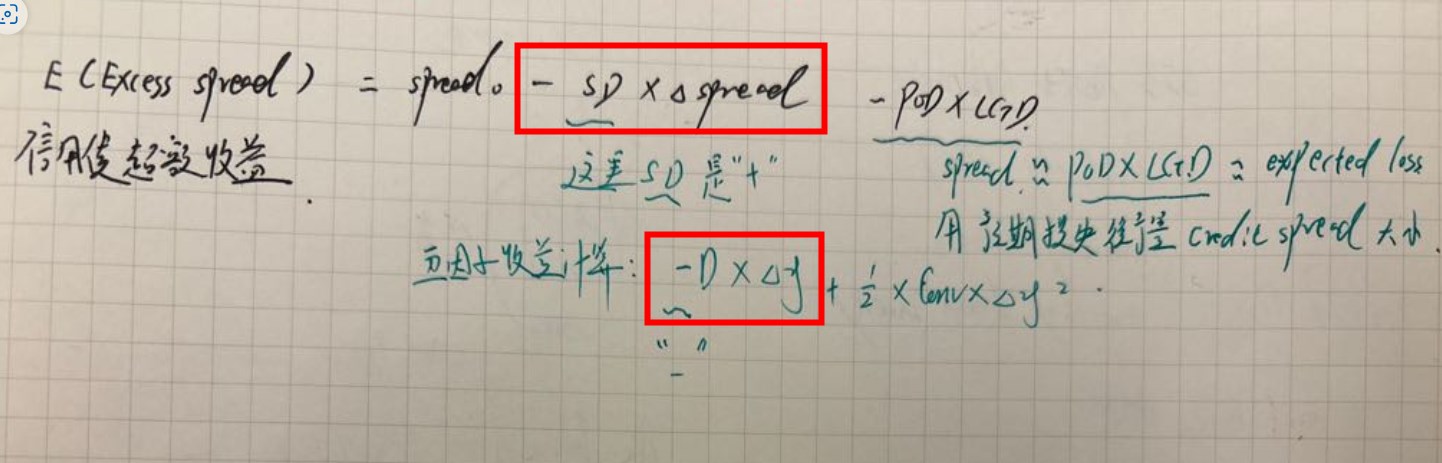 E (Excess spread) = spread₀ - SD × Δ spread - POD × LGD
信用债超额收益
这里 SD 是 "+"
spread ≈ POD × LGD ≈ expected loss
用预期损失衡量 credit spread 大小.
五因子收益计算: -D × Δy + 1/2 × Conv × Δy².
"-"